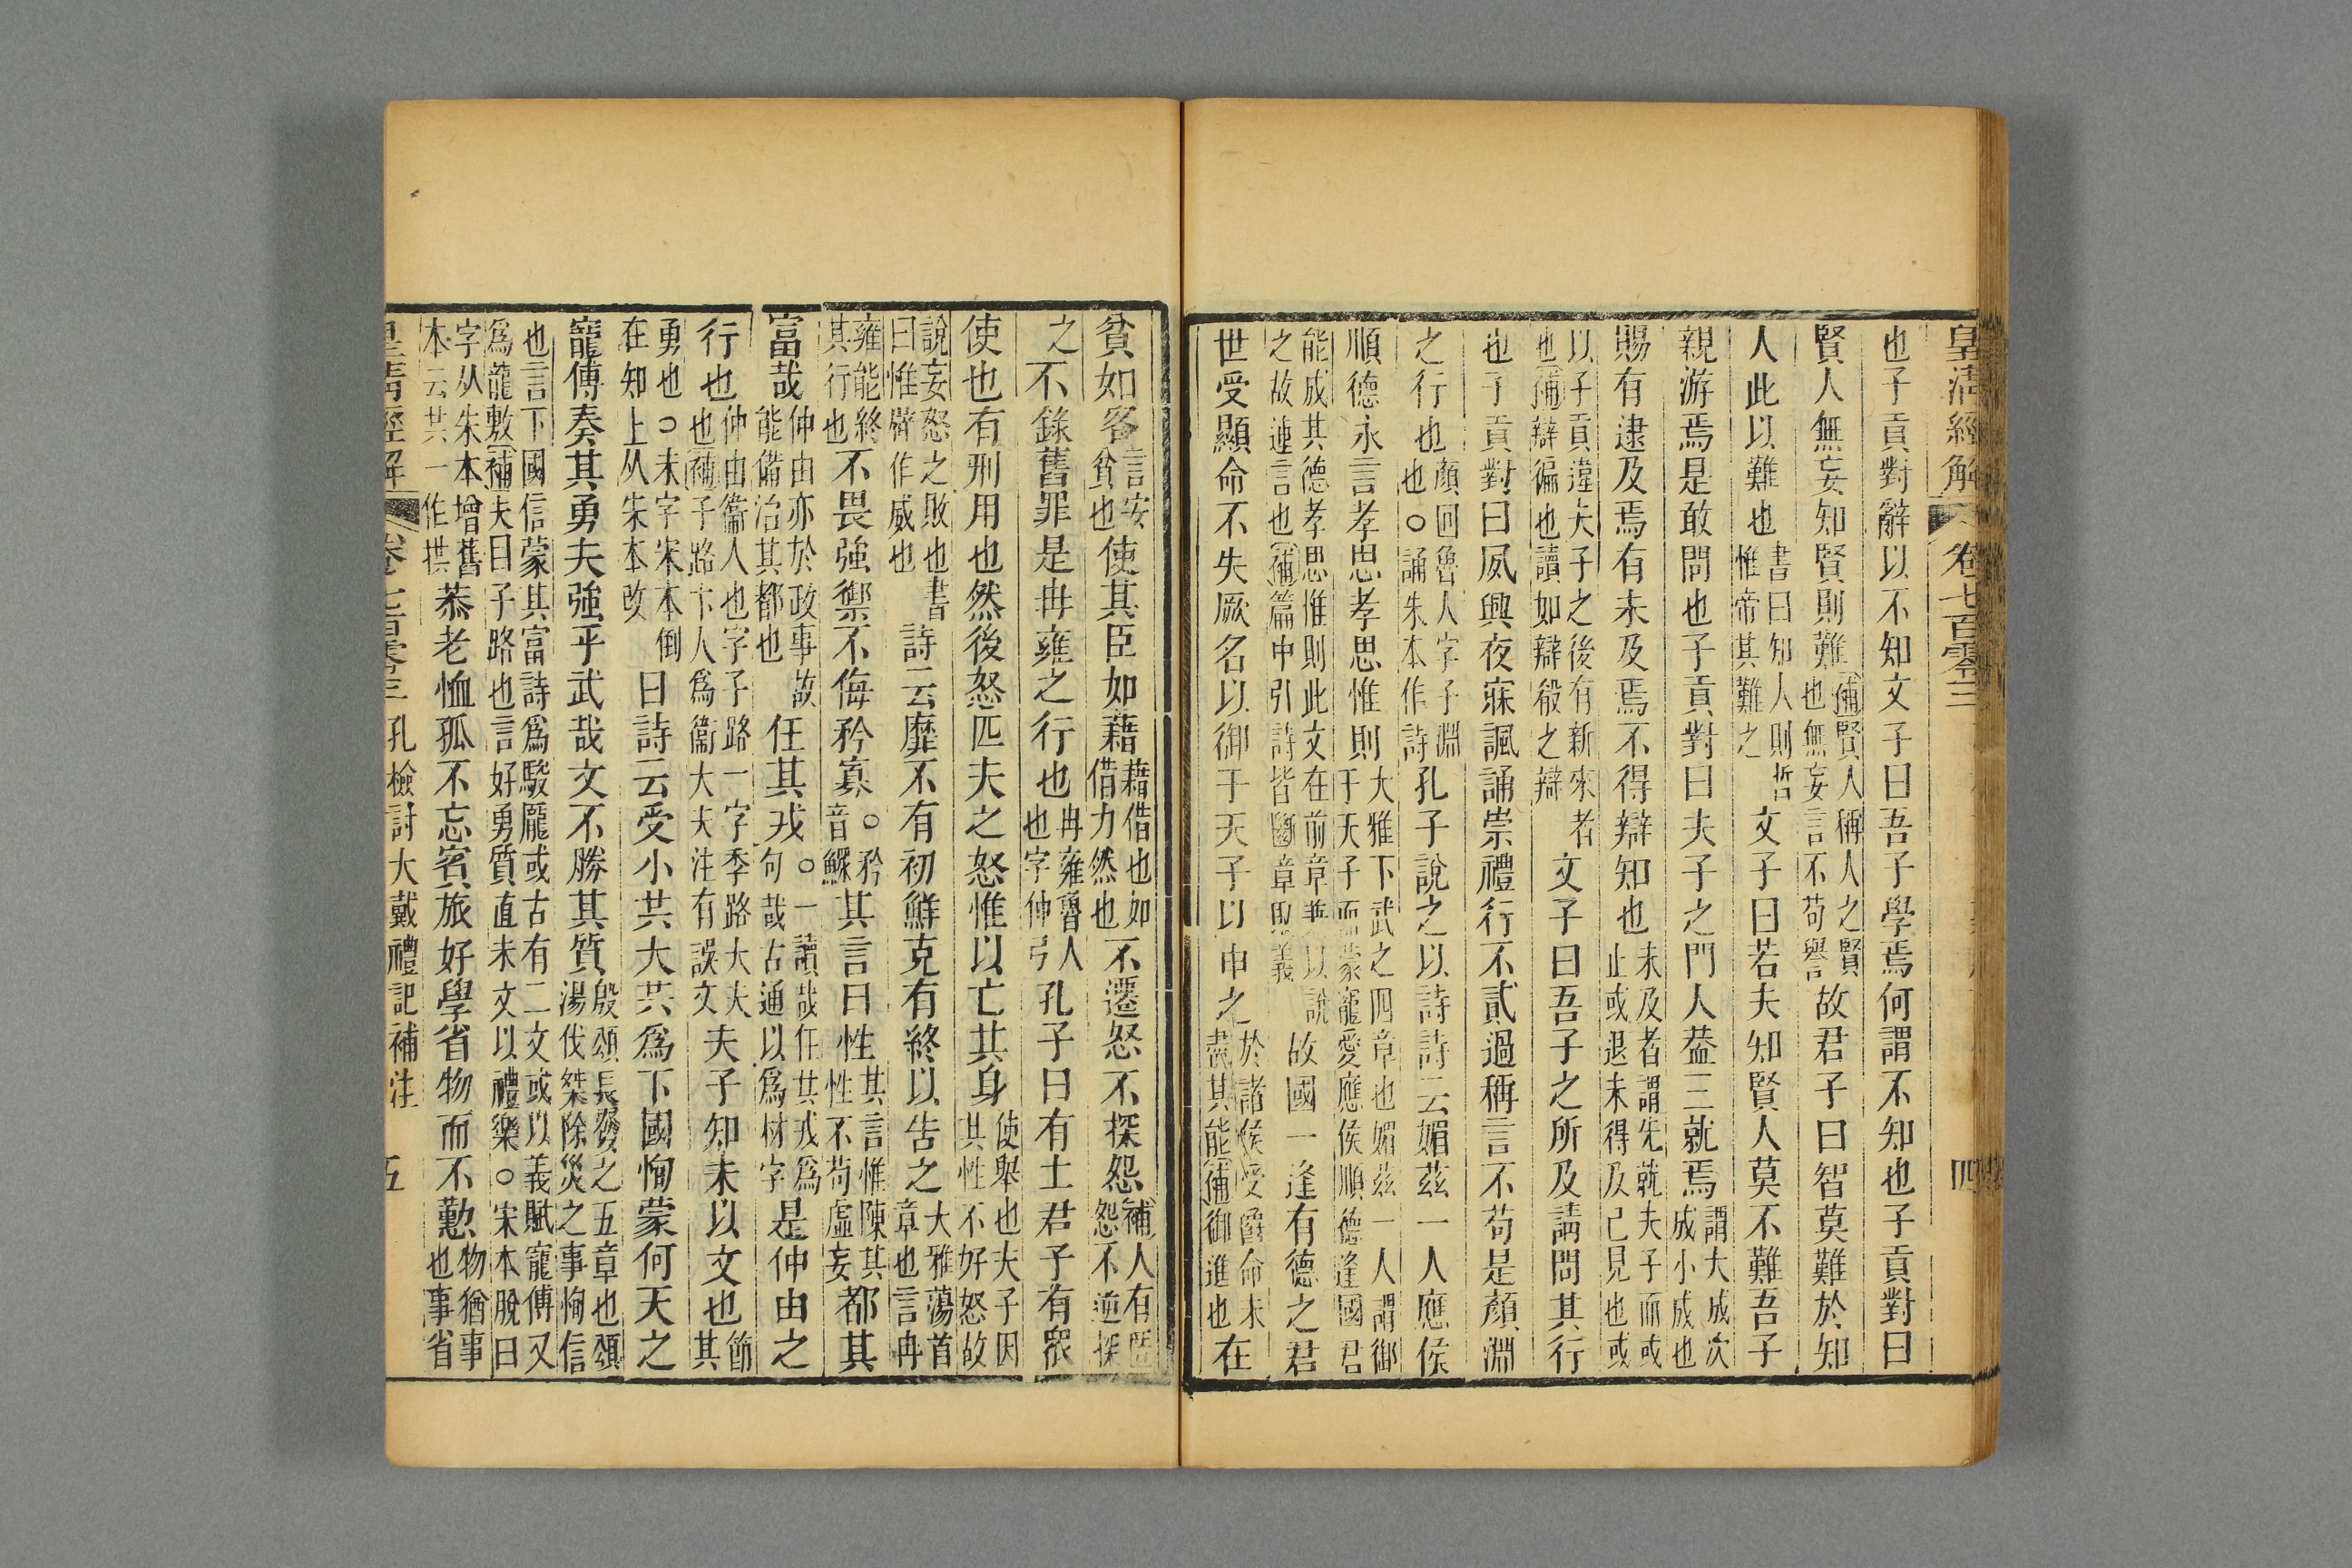 皇清經解 卷七百零三 四
也子貢對辭以不知文子曰吾子學焉何謂不知也子貢對曰
賢人無妄知賢則難補賢人稱人之賢也無妄言不苟譽故君子曰智莫難於知
人此以難也書曰知人則哲惟帝其難之文子曰若夫知賢人莫不難吾子
親游焉是敢問也子貢對曰夫子之門人葢三就焉謂大成次成小成也
賜有逮及焉有未及焉不得辯知也未及者謂先就夫子而或止或退未得及己見也或
以子貢違夫子之後有新來者也補辯徧也讀如辯殽之辯文子曰吾子之所及請問其行
也子貢對曰夙興夜寐諷誦崇禮行不貳過稱言不苟是顏淵
之行也顏回魯人字子淵也○誦朱本作詩孔子說之以詩詩云媚茲一人應侯
順德永言孝思孝思惟則大雅下武之四章也媚茲一人謂御于天子而蒙寵愛應侯順德逢國君
能成其德孝思惟則此文在前章兼以說之故連言也補篇中引詩皆斷章取義故國一逢有德之君
世受顯命不失厥名以御于天子以申之於諸侯受爵命未盡其能補御進也在
貧如客言安貧也使其臣如藉藉借也如借力然也不遷怒不探怨補人有匿怨不逆探
之不錄舊罪是冉雍之行也冉雍魯人也字仲弓孔子曰有土君子有眾
使也有刑用也然後怒匹夫之怒惟以亡其身使舉也夫子因其性不好怒故
說妄怒之敗也書曰惟辟作威也詩云靡不有初鮮克有終以告之大雅蕩首章也言冉
雍能終其行也不畏強禦不侮矜寡○矜音鰥其言曰性其言惟陳其性不苟虛妄都其
富哉仲由亦於政事故能備治其都也任其戎○一讀哉任其戎爲句哉古通以爲材字是仲由之
行也仲由衞人也字子路一字季路大夫也補子路卞人爲衞大夫注有誤文夫子知未以文也節其
勇也○未字宋本倒在知上从朱本改曰詩云受小共大共爲下國恂蒙何天之
寵傅奏其勇夫強乎武哉文不勝其質殷頌長發之五章也頌湯伐桀除災之事恂信
也言下國信蒙其富詩爲駿龐或古有二文或以義賦寵傅又爲龍敷補夫曰子路也言好勇質直未文以禮樂○宋本脫曰
字从朱本增舊本云共一作拱恭老恤孤不忘賓旅好學省物而不懃物猶事也事省
皇清經解 卷七百零三 孔檢討大戴禮記補注 五